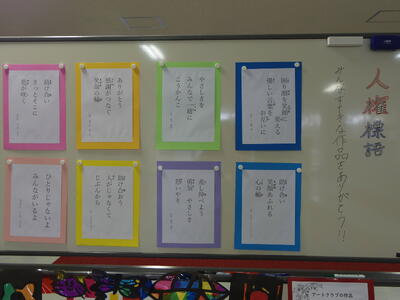 人権標語
みんなすてきな作品をありがとう!!
困り顔を笑顔に変える
優しい言葉を
お互いに
やさしさを
みんなで一緒に
こうかんこ
ありがとう
感謝がつなぐ
笑顔の輪
助け合い
きっとそこに
花が咲く
助け合い
笑顔あふれる
心の輪
差し伸べよう
やさしさ
思いやり
助け合おう
人がじゃなくて
じぶんから
ひとりじゃないよ
みんながいるよ
アートクラブの作品